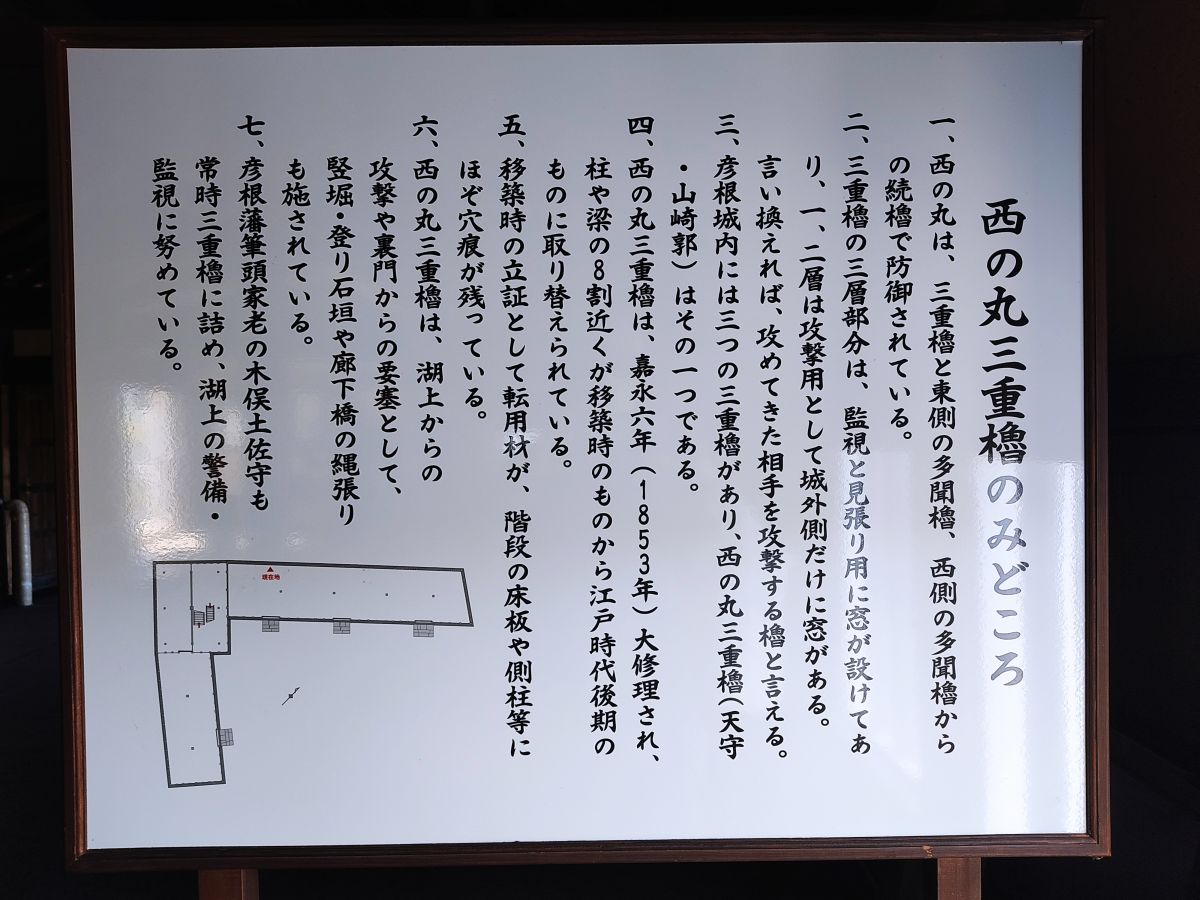 西の丸三重櫓のみどころ
一、西の丸は、三重櫓と東側の多聞櫓、西側の多聞櫓から
の続櫓で防御されている。
二、三重櫓の三層部分は、監視と見張り用に窓が設けてあ
り、一、二層は攻撃用として城外側だけに窓がある。
言い換えれば、攻めてきた相手を攻撃する櫓と言える。
三、彦根城内には三つの三重櫓があり、西の丸三重櫓(天守
・山崎郭)はその一つである。
四、西の丸三重櫓は、嘉永六年(1853年)大修理され、
柱や梁の8割近くが移築時のものから江戸時代後期の
ものに取り替えられている。
五、移築時の立証として転用材が、階段の床板や側柱等に
ほぞ穴痕が残っている。
六、西の丸三重櫓は、湖上からの
攻撃や裏門からの要塞として、
竪堀・登り石垣や廊下橋の縄張り
も施されている。
七、彦根藩筆頭家老の木俣土佐守も
常時三重櫓に詰め、湖上の警備・
監視に努めている。
現在地